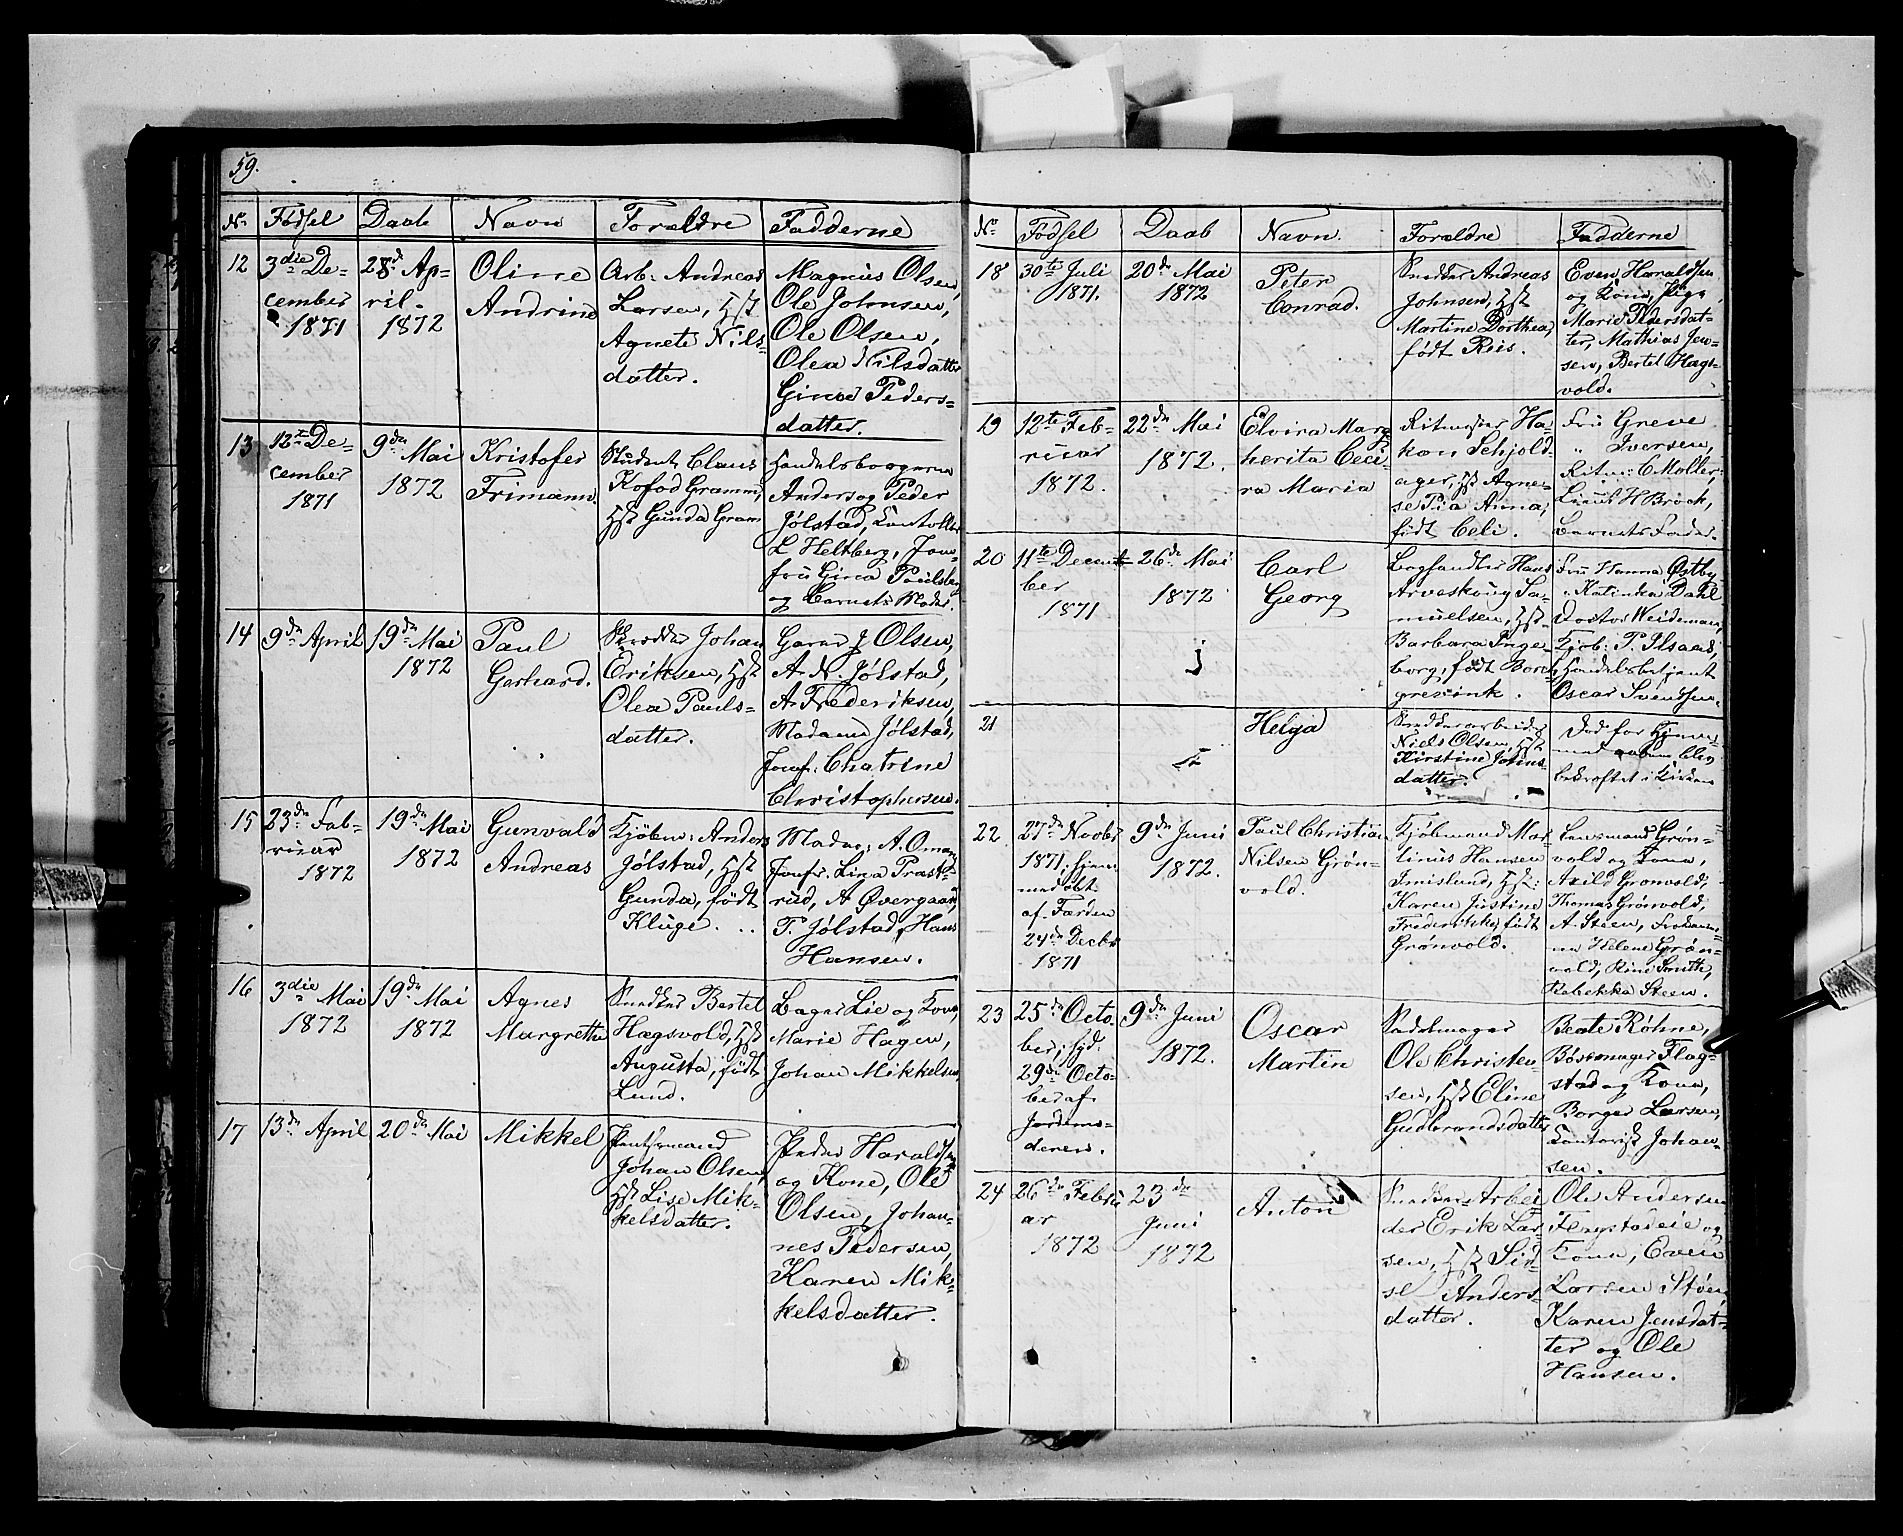 59.
No Födsel Daab Navn Forældre Fadderne
12 3die De-
cember
1871
28de Ap-
ril.
1872
Oline
Andrine
Arb: Andreas
Larsen, Hst
Agnete Nils-
datter.
Magnus Olsen,
Ole Johnsen,
Ole Olsen,
Olea Nilsdatter
Gina Peders-
datter.
13 12te De-
cember
1871
9de Mai
1872
Kristofer
Frimann.
Student Claus
Kofod Gramm,
Hst Gunda Gram
Handelsborgerne
Anders og Peder
Jölstad,
L Heltberg, Jom-
fru Gina
og Barnets Moder.
14 9de April
19de Mai
1872
Paul
Gerhard.
Skrædder Johan
Eriksen, Hst
Olea Pauls-
datter.
Garver J Olsen,
A. N. Jölstad,
A. Frederiksen,
Madame Jölstad,
Jomf: Chatrine
Christophersen.
15 23de Feb-
ruar
1872
19de Mai
1872
Gunvald
Andreas
Kjöbm: Anders
Jölstad, Hst
Gunda, född
Kluge.
Madm: A. Oman,
Jomfr. Lina Præst-
rud, A Övergaard,
P. Jölstad, Hans
Hansen.
16 3die Mai
1872
19de Mai
1872
Agnes
Margrethe
Snedker Bertel
Hægsvold, Hst
Augusta, födt
Lund.
Bager Lie og Kone,
Marie Hagen,
Johan Mikkelsen
17 13de April
20de Mai
Mikkel
Johan Olsen,
Hst Lise Mik-
kelsdatter.
Peder Haraldsen
og Kone, Ole
Olsen, Johan-
nes Pedersen,
Karen Mik-
kelsdatter.
No Födsel Daab Navn. Forældre Fadderne
18 30te Juli
1871.
20de Mai
1872
Peter
Conrad.
Snedker Andreas
Johnsen, Hst
Martine Dorthea,
födt Riis.
Even Haraldsen
og Kone, Pige
Marie Pedersdat-
ter, Mathias Jen-
sen, Bertel Hægs-
vold.
19 12te Feb-
ruar
1872.
22de Mai
1872.
Elvira Marg
herita Ceci-
ra Maria
Ritmester Ha-
kon Schjold-
ager, Hst Agne-
se Pia Anna,
födt Celi.
Fru Greve
" Iversen,
Ritm: C Møller,
Lieut H Brock,
Barnets Fader.
20 11te Decem-
ber
1871
26de Mai
1872
Carl
Georg
Boghandler Hans
Arveskoug Sa-
muelsen, Hst
Barbara Inge-
borg, födt Borch
grevink.
Fru Hanna Østby,
" Katinka Dahl
Doctor Weideman,
Kjöb: P.
Handelsbetjent
Oscar Svendsen.
21
Helga
Snedkerarbeider
Niels Olsen, Hst
Kirstine Johns-
datter.
Död för Hjemme-
daaben blev
bekræftet i Kirken
22 27de Novbr
1871, hjem-
medöbt
af Færden
24de Decbr
1871
9de Juni
1872.
Paul Christian
Nilsen Grön-
vold.
Kjöbmand Mar-
tinus Hansen
Imislund, Hst:
Karen Justine
Frederikke födt
Grönvold.
Lensmand Grön-
vold og Kone,
Axild Gronvold,
Thomas Grönvold,
A. Steen, Johan-
ne Helene Grön-
vold, Rine Smitte,
Rebekka Steen.
23 25de Octo-
ber, hjd:
29de Octo-
ber af
Jordmo-
deren.
9de Juni
1872.
Oscar
Martin
Sadelmager
Ole Christen
sen, Hst Eline
Gudbrandsdatter
Beate Röhne,
Bössemager Flag-
stad og Kone,
Borger Larsen,
Contorist Johan-
sen.
24 26de Febru
ar
1872
23de
Juni
1872
Anton
Snedker Arbei
der Erik Lar-
sen, Hst Sid-
sel Anders-
datter.
Ole Andersen
Fængstadeie og
Kone, Even
Larsen Stöen,
Karen Jensdat-
ter og Ole
Hansen.